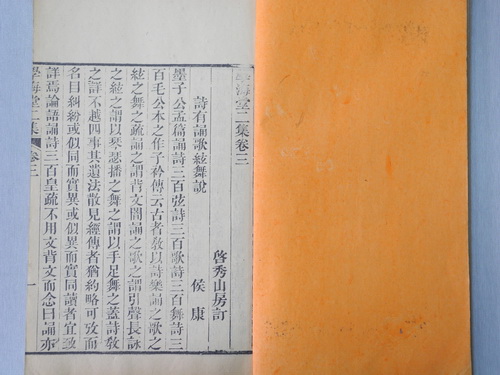 學海堂二集卷三
啓秀山房訂
詩有誦歌絃舞說
侯康
墨子公孟篇誦詩三百弦詩三百歌詩三百舞詩三
百毛公本之作子衿傳云古者敎以詩樂誦之歌之
絃之舞之疏誦之謂背文闇誦之歌之謂引聲長詠
之絃之謂以琴瑟播之舞之謂以手足舞之蓋詩敎
之詳不越四事其遺法散見經傳者猶約略可攷而
名曰糾紛或似同而實異或似異而實同讀者宜致
詳焉論語誦詩三百皇疏不用文背文而念曰誦亦
學海堂二集
卷三
一